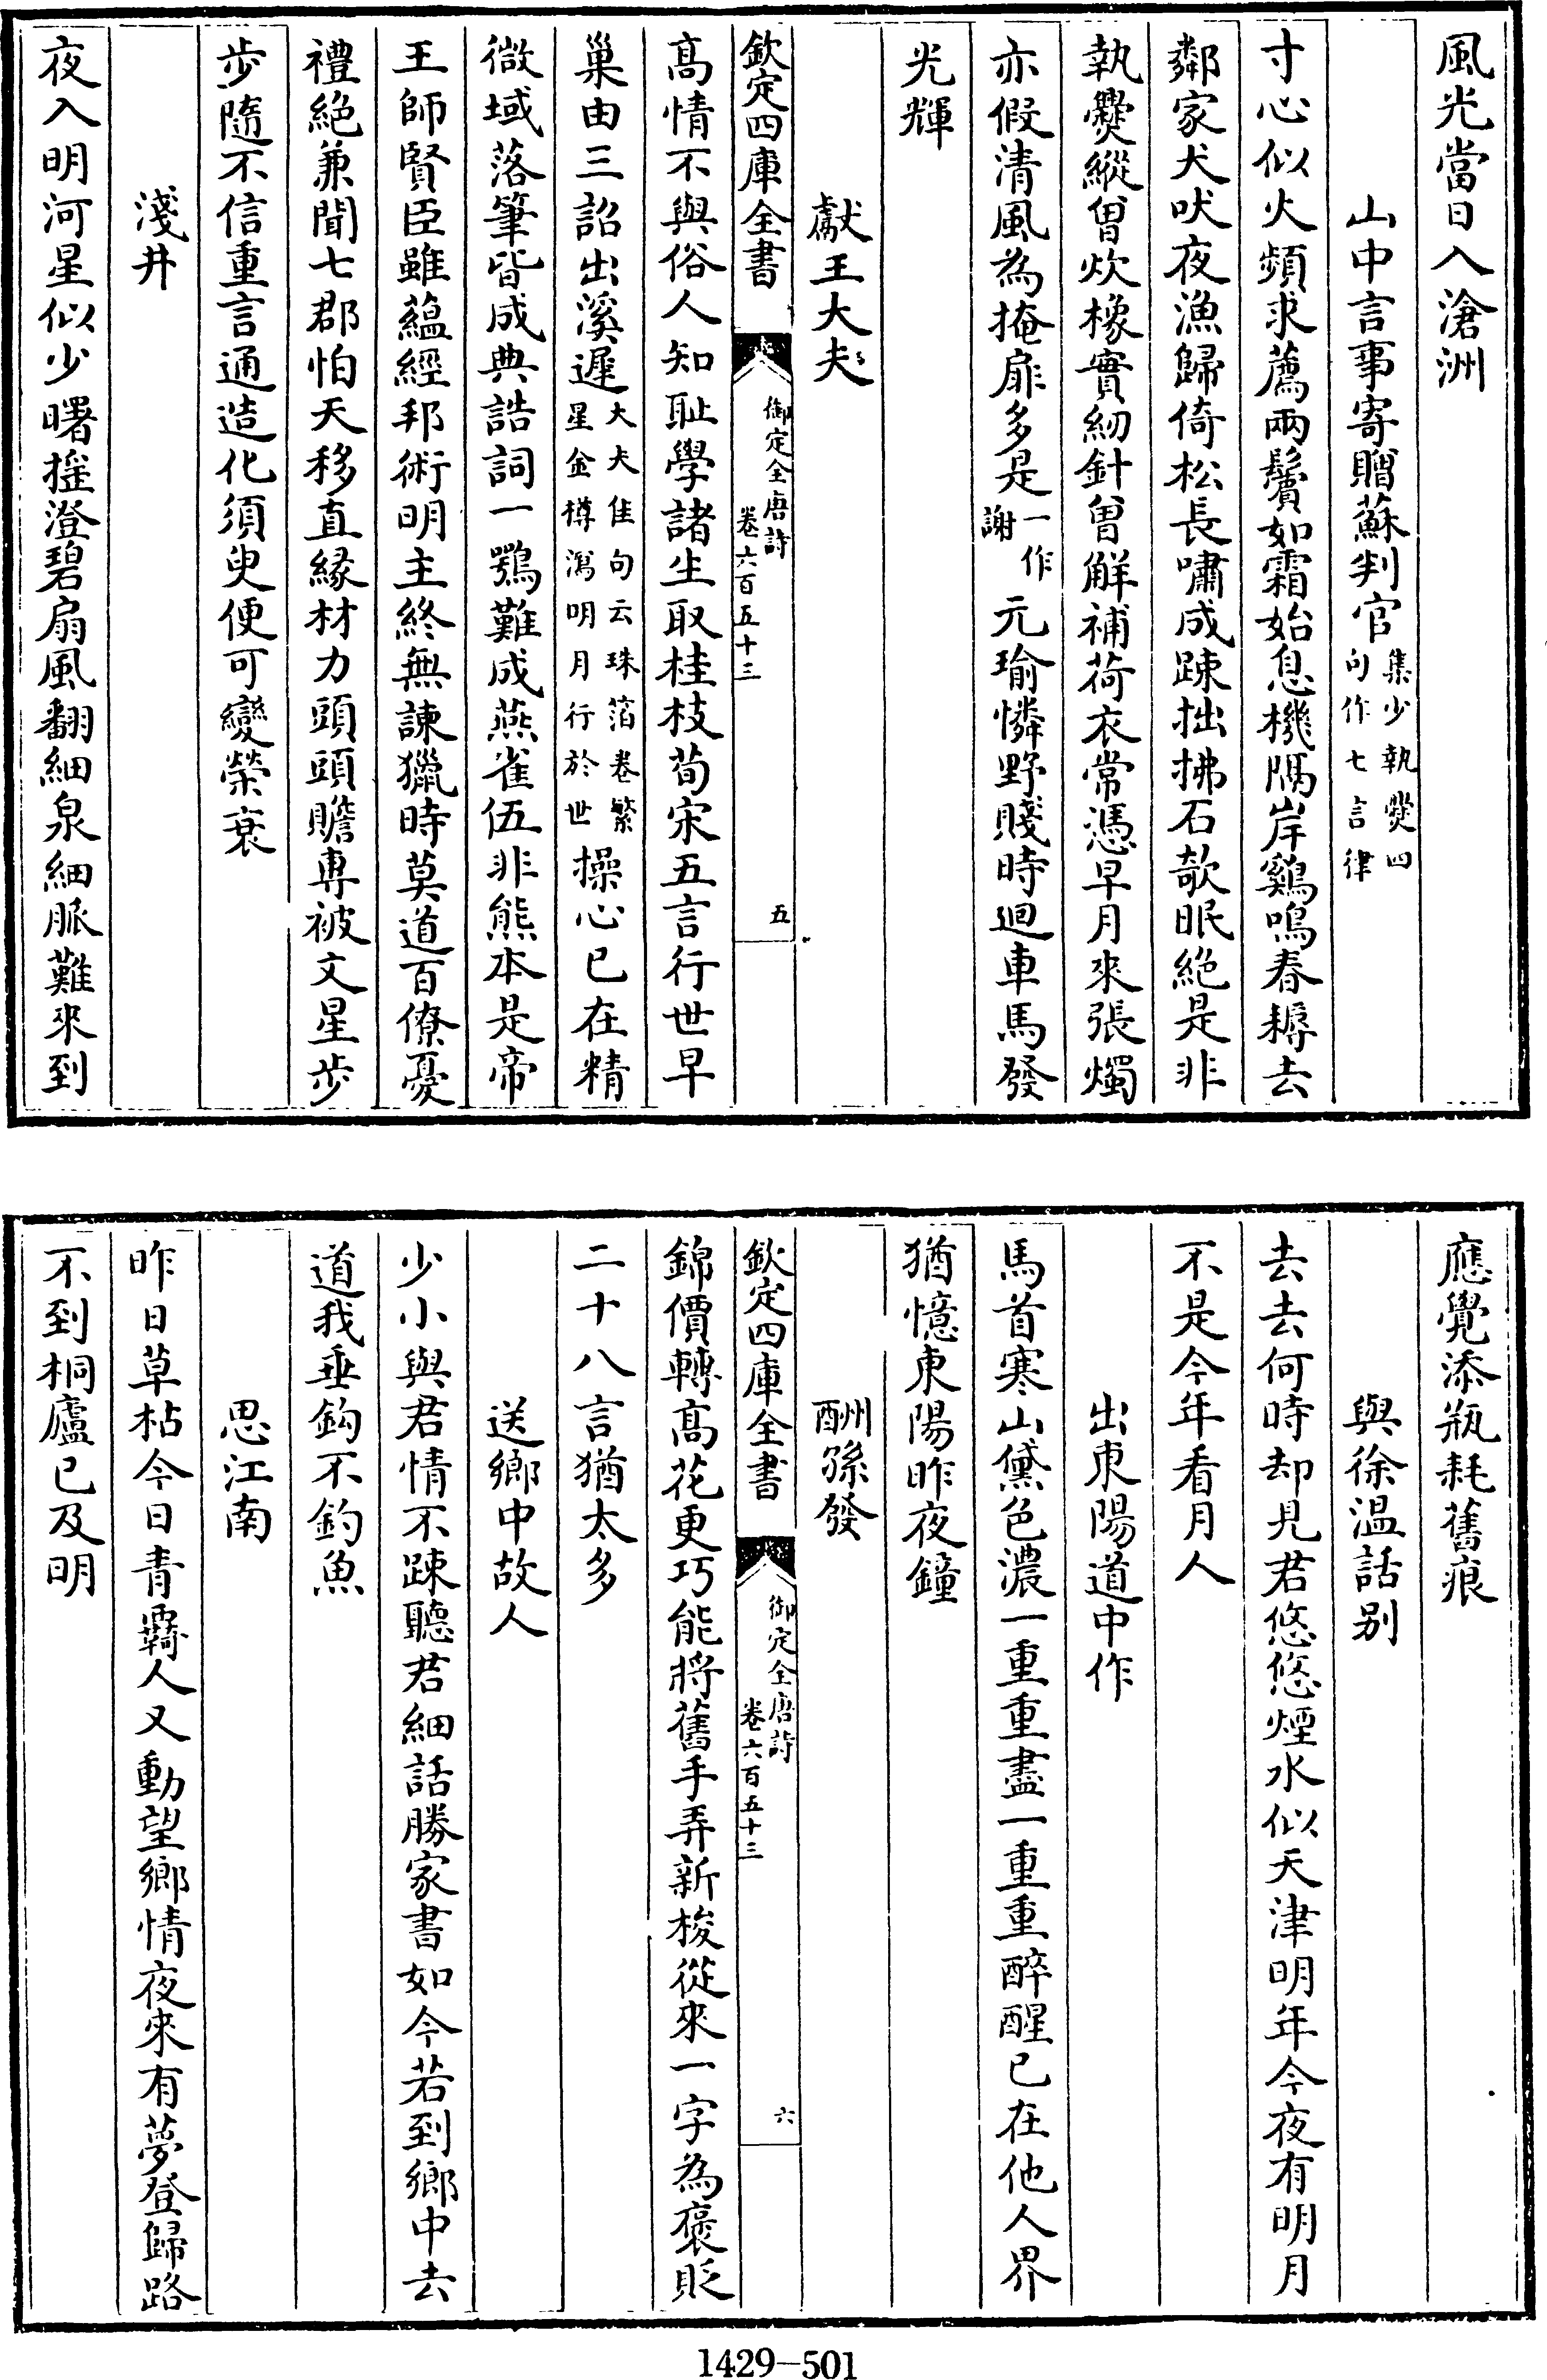 風光當日入滄洲
山中言事寄贈蘇判官集少執爨四句作七言律
寸心似火頻求薦兩鬢如霜始息機隔岸鷄鳴春耨去
鄰家犬吠夜漁歸倚松長嘯成踈拙拂石欹眠絶是非
執爨縱曽炊橡實紉針曽解補荷衣常憑早月來張燭
亦假清風為掩扉多是一作謝元瑜憐野賤時迴車馬發
光輝
獻王大夫
欽定四庫全書
御定全唐詩
卷六百五十三
五
髙情不與俗人知耻學諸生取桂枝荀宋五言行世早
巢由三詔出溪遲大夫佳句云珠箔卷繁星金樽瀉明月行於世操心已在精
微域落筆皆成典誥詞一鶚難成燕雀伍非熊本是帝
王師賢臣雖蘊經邦術明主終無諫獵時莫道百僚憂
禮絶兼聞七郡怕天移直緣材力頭頭贍專被文星步
步隨不信重言通造化須臾便可變榮衰
淺井
夜入明河星似少曙揺澄碧扇風翻細泉細脈難來到
應覺添瓶耗舊痕
與徐温話别
去去何時却見君悠悠煙水似天津明年今夜有明月
不是今年看月人
出東陽道中作
馬首寒山黛色濃一重重盡一重重醉醒已在他人界
猶憶東陽昨夜鐘
酬孫發
欽定四庫全書
御定全唐詩
卷六百五十三
六
錦價轉髙花更巧能將舊手弄新梭從來一字為褒貶
二十八言猶太多
送鄉中故人
少小與君情不踈聽君細話勝家書如今若到鄉中去
道我垂鈎不釣魚
思江南
昨日草枯今日青羇人又動望鄉情夜來有夢登歸路
不到桐廬已及明
1429-501